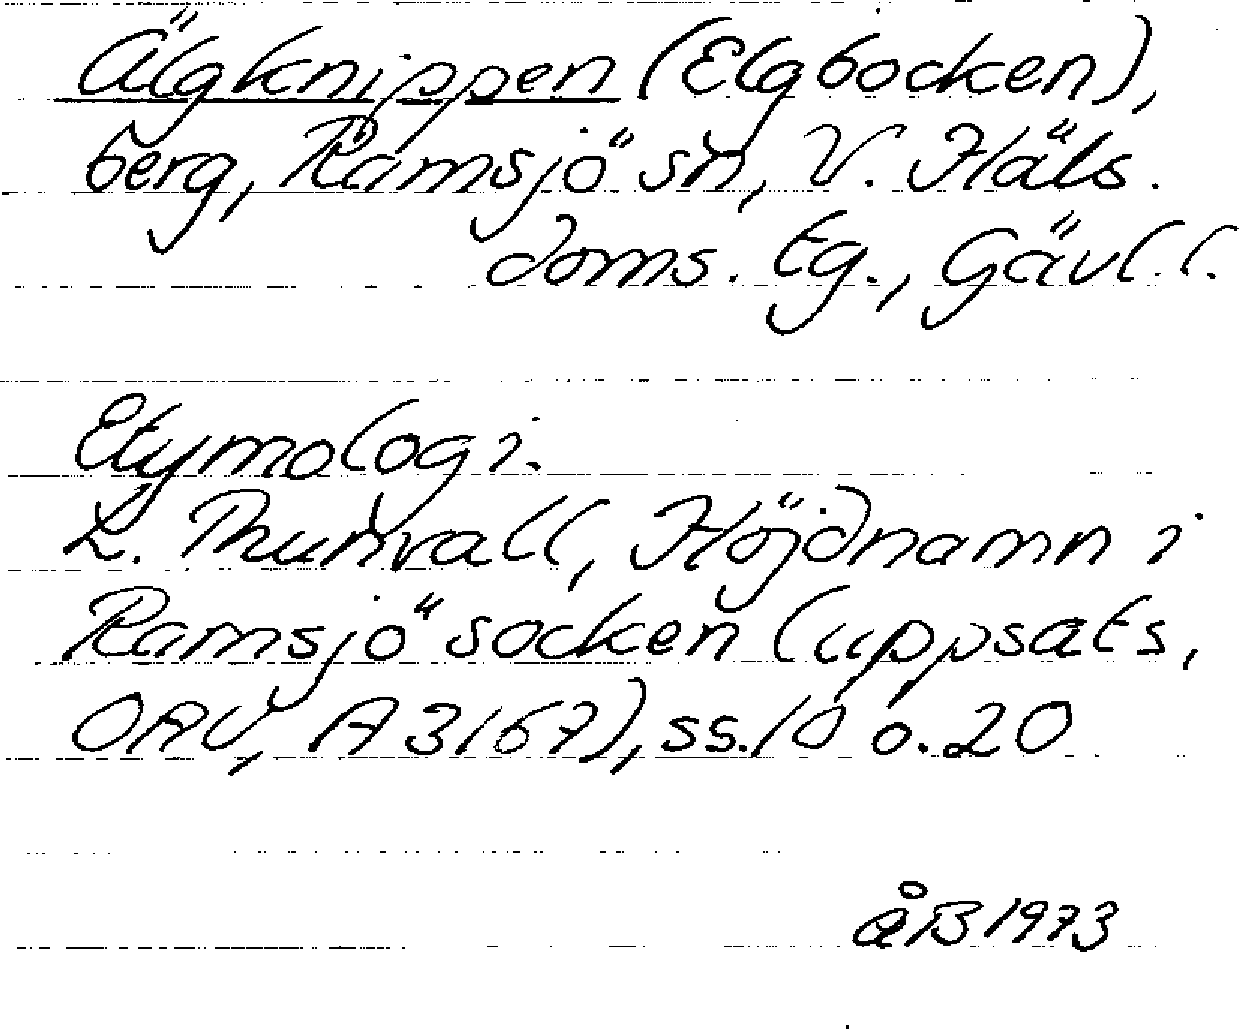 Älgknippen (Elgbocken),
berg, Ramsjö sn, V. Häls.
doms. tg., Gävl. l.
Etymologi.
L. Thunvall, Höjdnamn i
Ramsjö socken (uppsats,
OAU, A 3167), ss. 10 o. 20
åB 1973